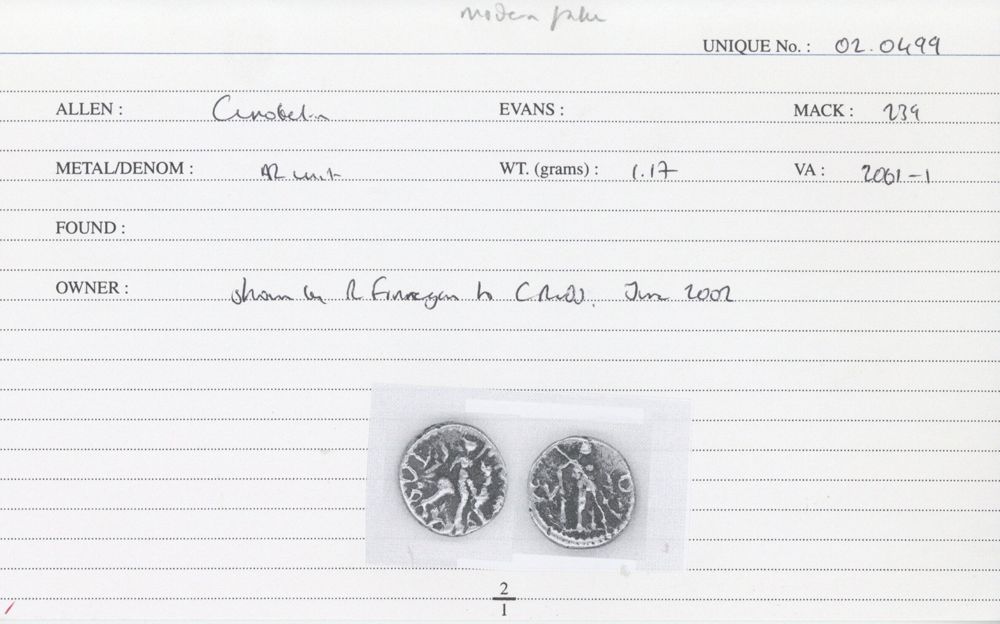 modern fake
UNIQUE No. : 02.0499
ALLEN : Cunobelin EVANS : MACK : 239
METAL/DENOM : AR unit WT. (grams) : 1.17 VA : 2061-1
FOUND :
OWNER : shown by R Finnegan to CR June 2002
2
1